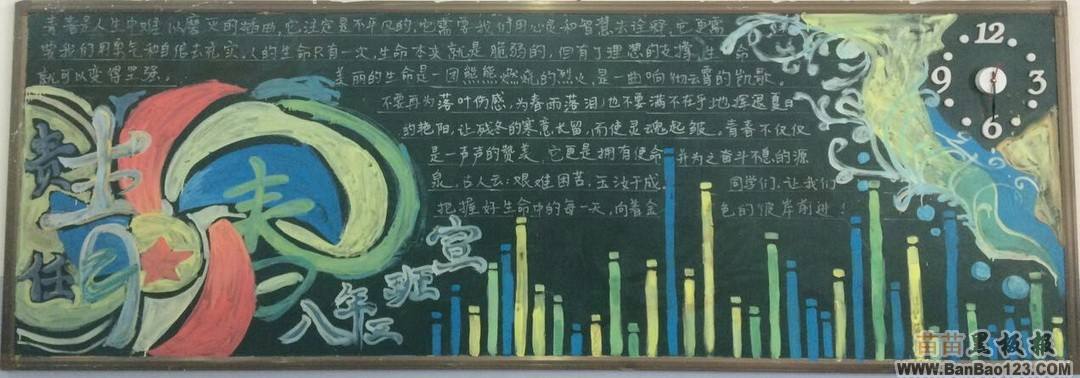 青春是人生中难以磨灭的插曲,它注定是不平凡的,它需要我们用心灵和智慧去诠释,它更需
要我们用勇气和自信去充实。人的生命只有一次,生命本来就是脆弱的,但有了理想的支撑,生命
就可以变得坚强。
美丽的生命是一团熊熊燃烧的烈火,是一曲响彻云霄的凯歌
不要再为落叶伤感,为春雨落泪,也不要满不在乎地挥退夏日
的艳阳,让残冬的寒意长留,而使灵魂起皱。青春不仅仅
是一声声的赞美,它更是拥有使命 并为之奋斗不息的源
泉。古人云:艰难困苦,玉汝于成。 同学们,让我们
把握好生命中的每一天,向着金 色的彼岸前进!
责任
青春
八年二班宣
12
3
6
9
苗苗黑板报
www.BanBao123.com